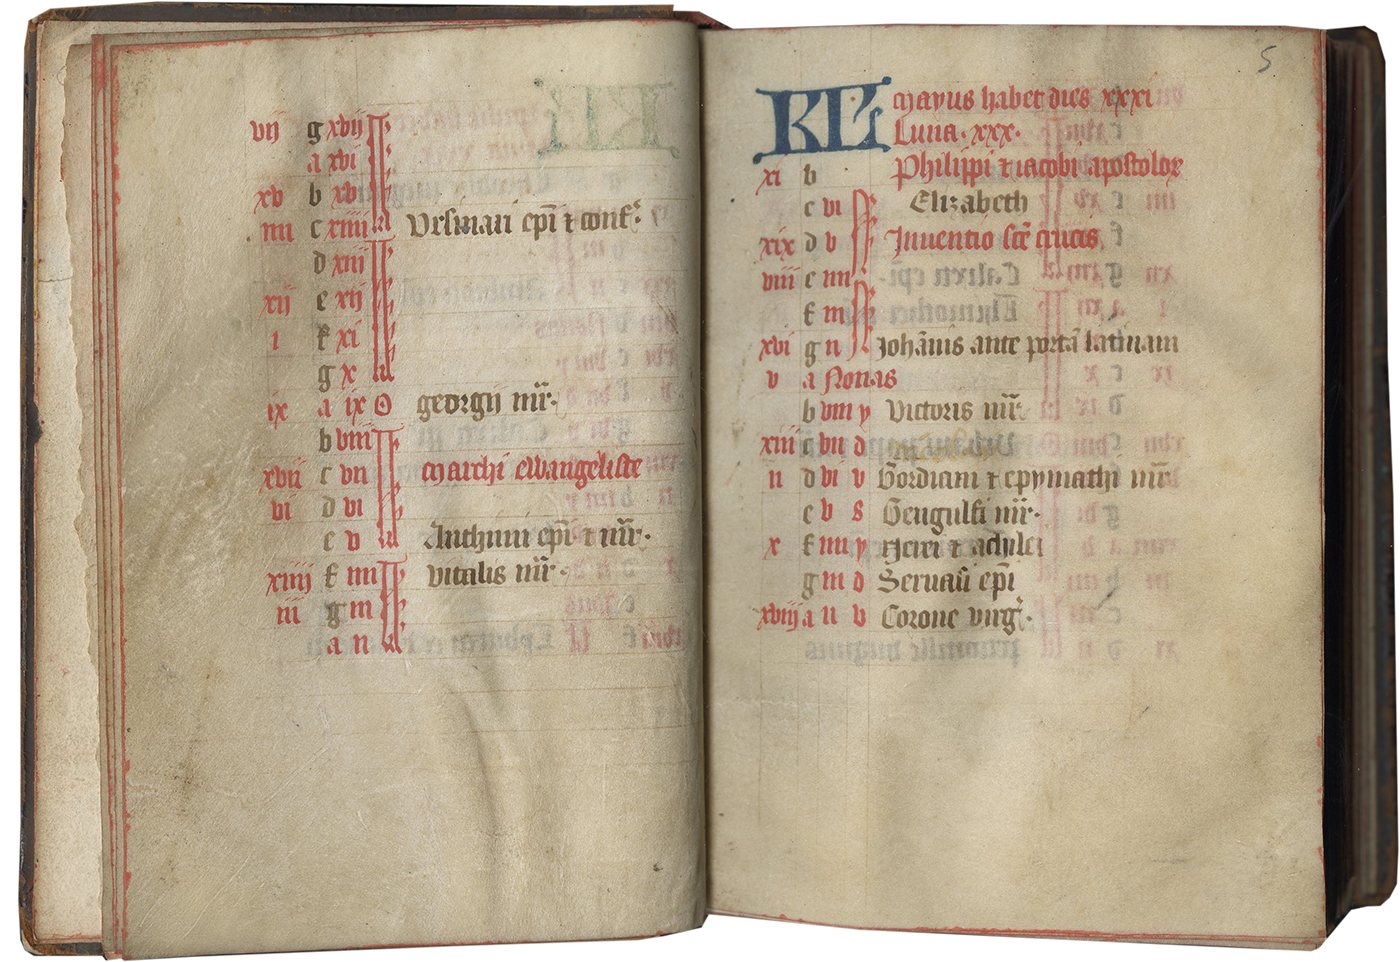 vij g xvij
a xvi
xv b xv
iiii c xiiii Vrsmari epi & conf.
d xiii
xij e xij
i f xi
g x
ix a ix georgij mr.
b viii
xvii c vii marchi ewangeliste
vi d vi
e v Anthimi epi & mr.
xiiij f iiii vitalis mr.
iii g iii
a ii
5
KL mayus habet dies xxxi
Luna. xxx.
xi b Philippi & iacobi apostolor
c vi Elizabeth
xix d v Inuentio sce crucis
viii e iiii
f iii
xvi g ii Johannis ante porta latinam
v a Nonas
b viii y Victoris mr.
xiii c vii d
ii d vi v Gordiani & epymathi mr
e v s Gengulfi mr.
x f iiii y Nerei & achilei
g iii d Seruacii epi
xviij a ii v Corone virg.